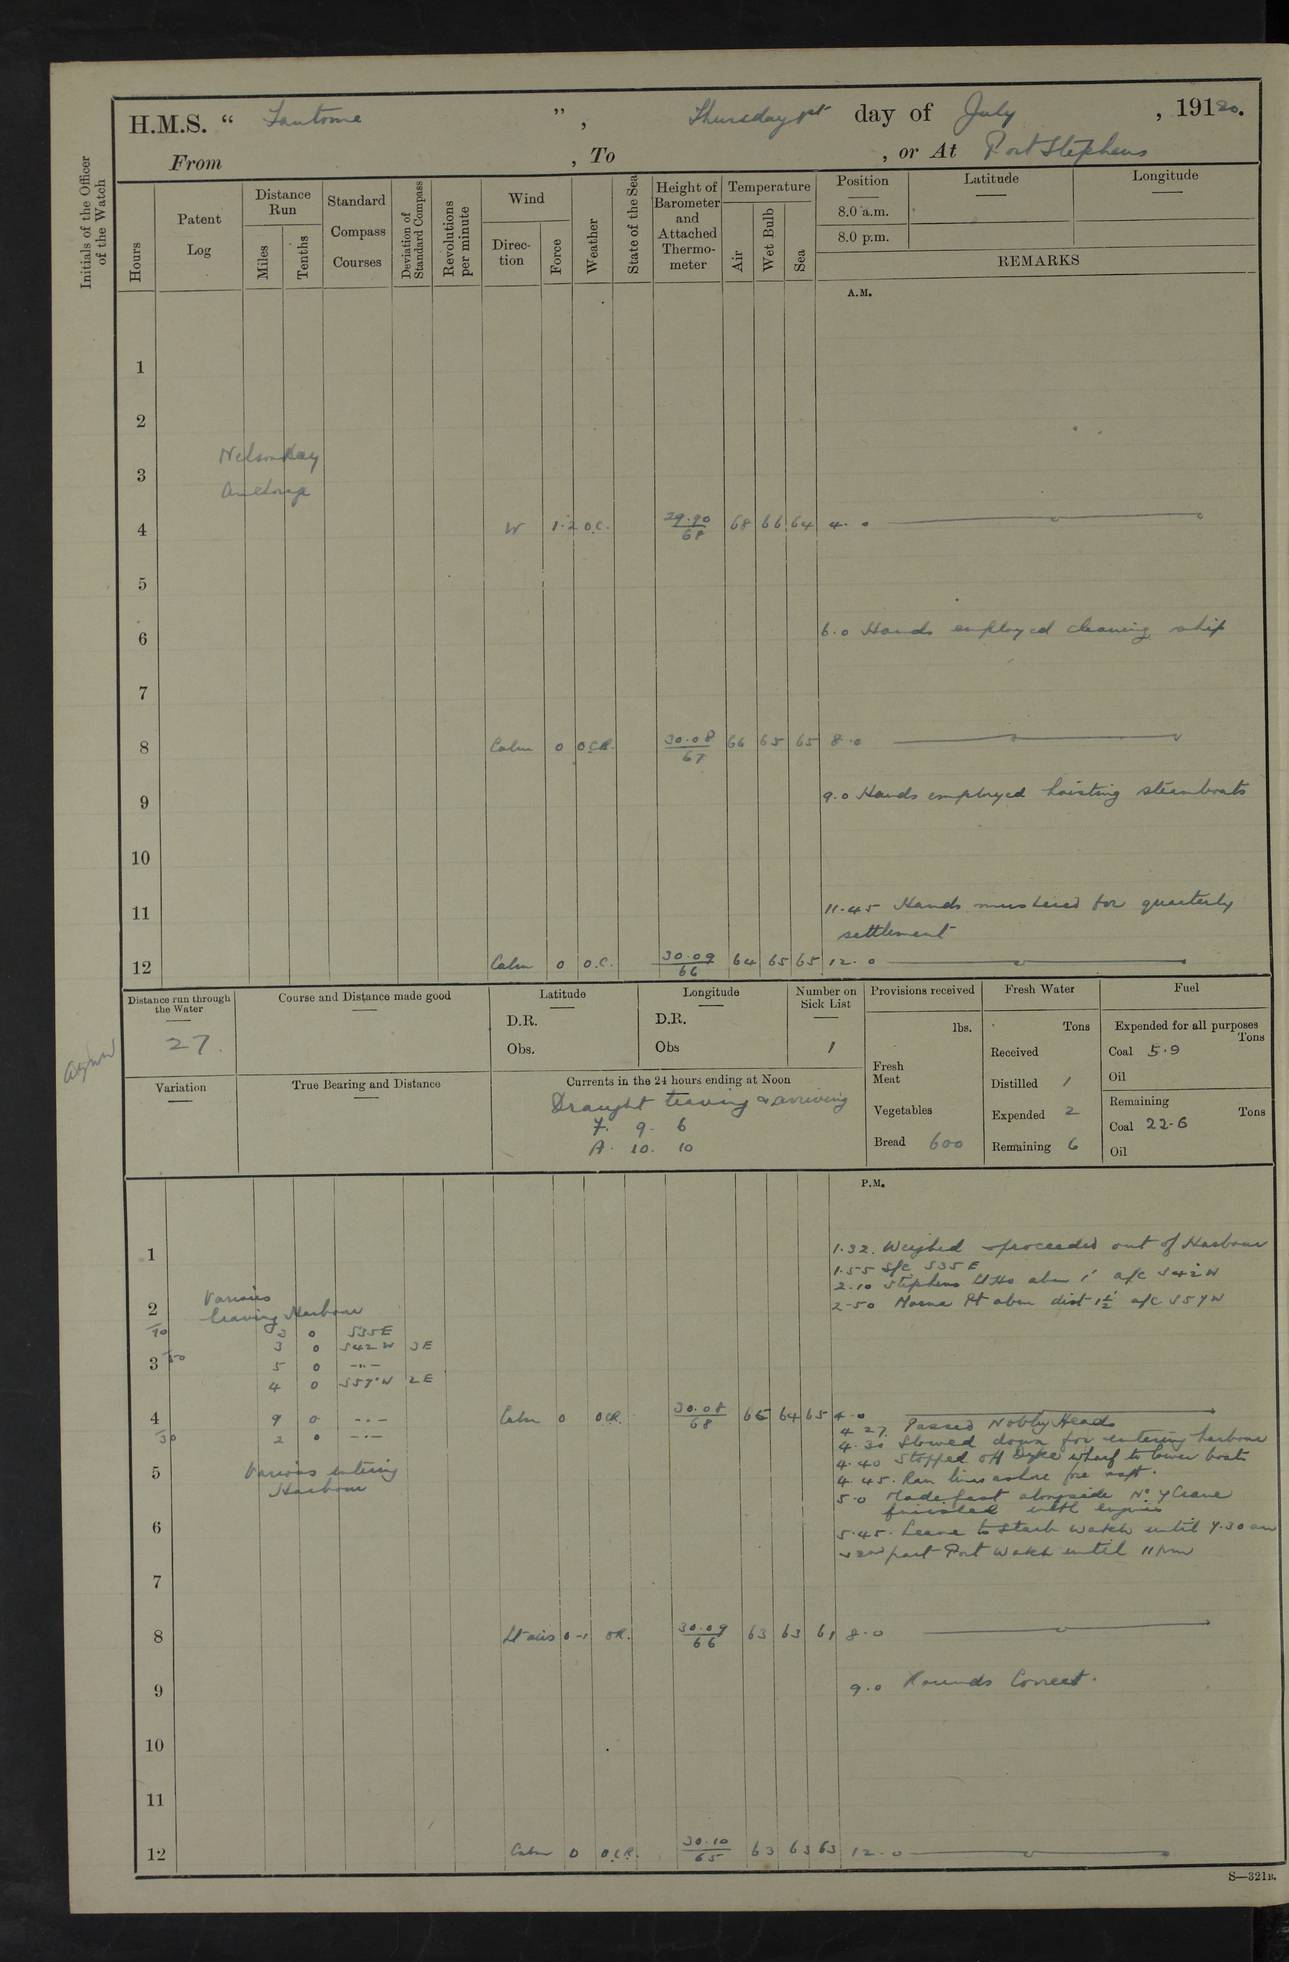 H.M.S. “ Fantome ” , Thursday 1st day of July , 19120.
From , To , or At Port Stephens
Initials of the Officer of the Watch
Hours
Patent Log
Distance Run
Miles
Tenths
Standard Compass Courses
Deviation of Standard Compass
Revolutions per minute
Wind
Direction
Force
Weather
State of the Sea
Height of Barometer and Attached Thermometer
Temperature
Air
Wet Bulb
Sea
Position
8.0 a.m.
8.0 p.m.
Latitude
Longitude
REMARKS
A.M.
1
2
Nelson Bay
3
Anchorage
4 W 1.2 O.C. 29.90/68 68 66 64 4.0
5
6 6.0 Hands employed cleaning ship
7
8 Calm 0 O.C.R. 30.08/67 66 65 65 8.0
9 9.0 Hands employed hoisting steamboats
10
11 11.45 Hands mustered for quarterly
settlement
12 Calm 0 O.C. 30.09/66 64 65 65 12.0
Distance run through the Water
27
Course and Distance made good
Latitude
D.R.
Obs.
Longitude
D.R.
Obs
Number on Sick List
1
Provisions received
lbs.
Fresh Meat
Vegetables
Bread 600
Fresh Water
Tons
Received
Distilled 1
Expended 2
Remaining 6
Fuel
Expended for all purposes
Tons
Coal 5.9
Oil
Remaining
Tons
Coal 22.6
Oil
Variation
True Bearing and Distance
Currents in the 24 hours ending at Noon
Draught leaving & arriving
F. 9. 6
A. 10. 10
P.M.
1 1.32. Weighed & proceeded out of Harbour
1.55 S/C S35E
2.10 Stephens Lt Ho abm 1' a/c S42W
Various
2 leaving Harbour 2-50 Morna Pt abm dist 1½' a/c S57W
/10 3 0 S35E
3 0 S42W 3E
3 /50 5 0 -"-
4 0 S57°W 2E
4 9 0 -"- Calm 0 OCR. 30.08/68 65 64 65 4.0
4 27. Passed Nobby Heads
/30 2 0 -"- 4.30 Slowed down for entering harbour
4.40 Stopped off Dyke wharf to lower boats
5 Various entering 4.45. Ran lines ashore fore & aft.
Harbour
5.0 Made fast alongside No 7 Crane
finished with engines
6 5.45. Leave to Starb watch until 7.30 am
& 2nd part Port Watch until 11 pm
7
8 Lt airs 0-1 OR. 30.09/66 63 63 61 8.0
9 9.0 Rounds Correct.
10
11
12 Calm 0 O.C.R. 30.10/65 63 63 63 12.0
S—321B.